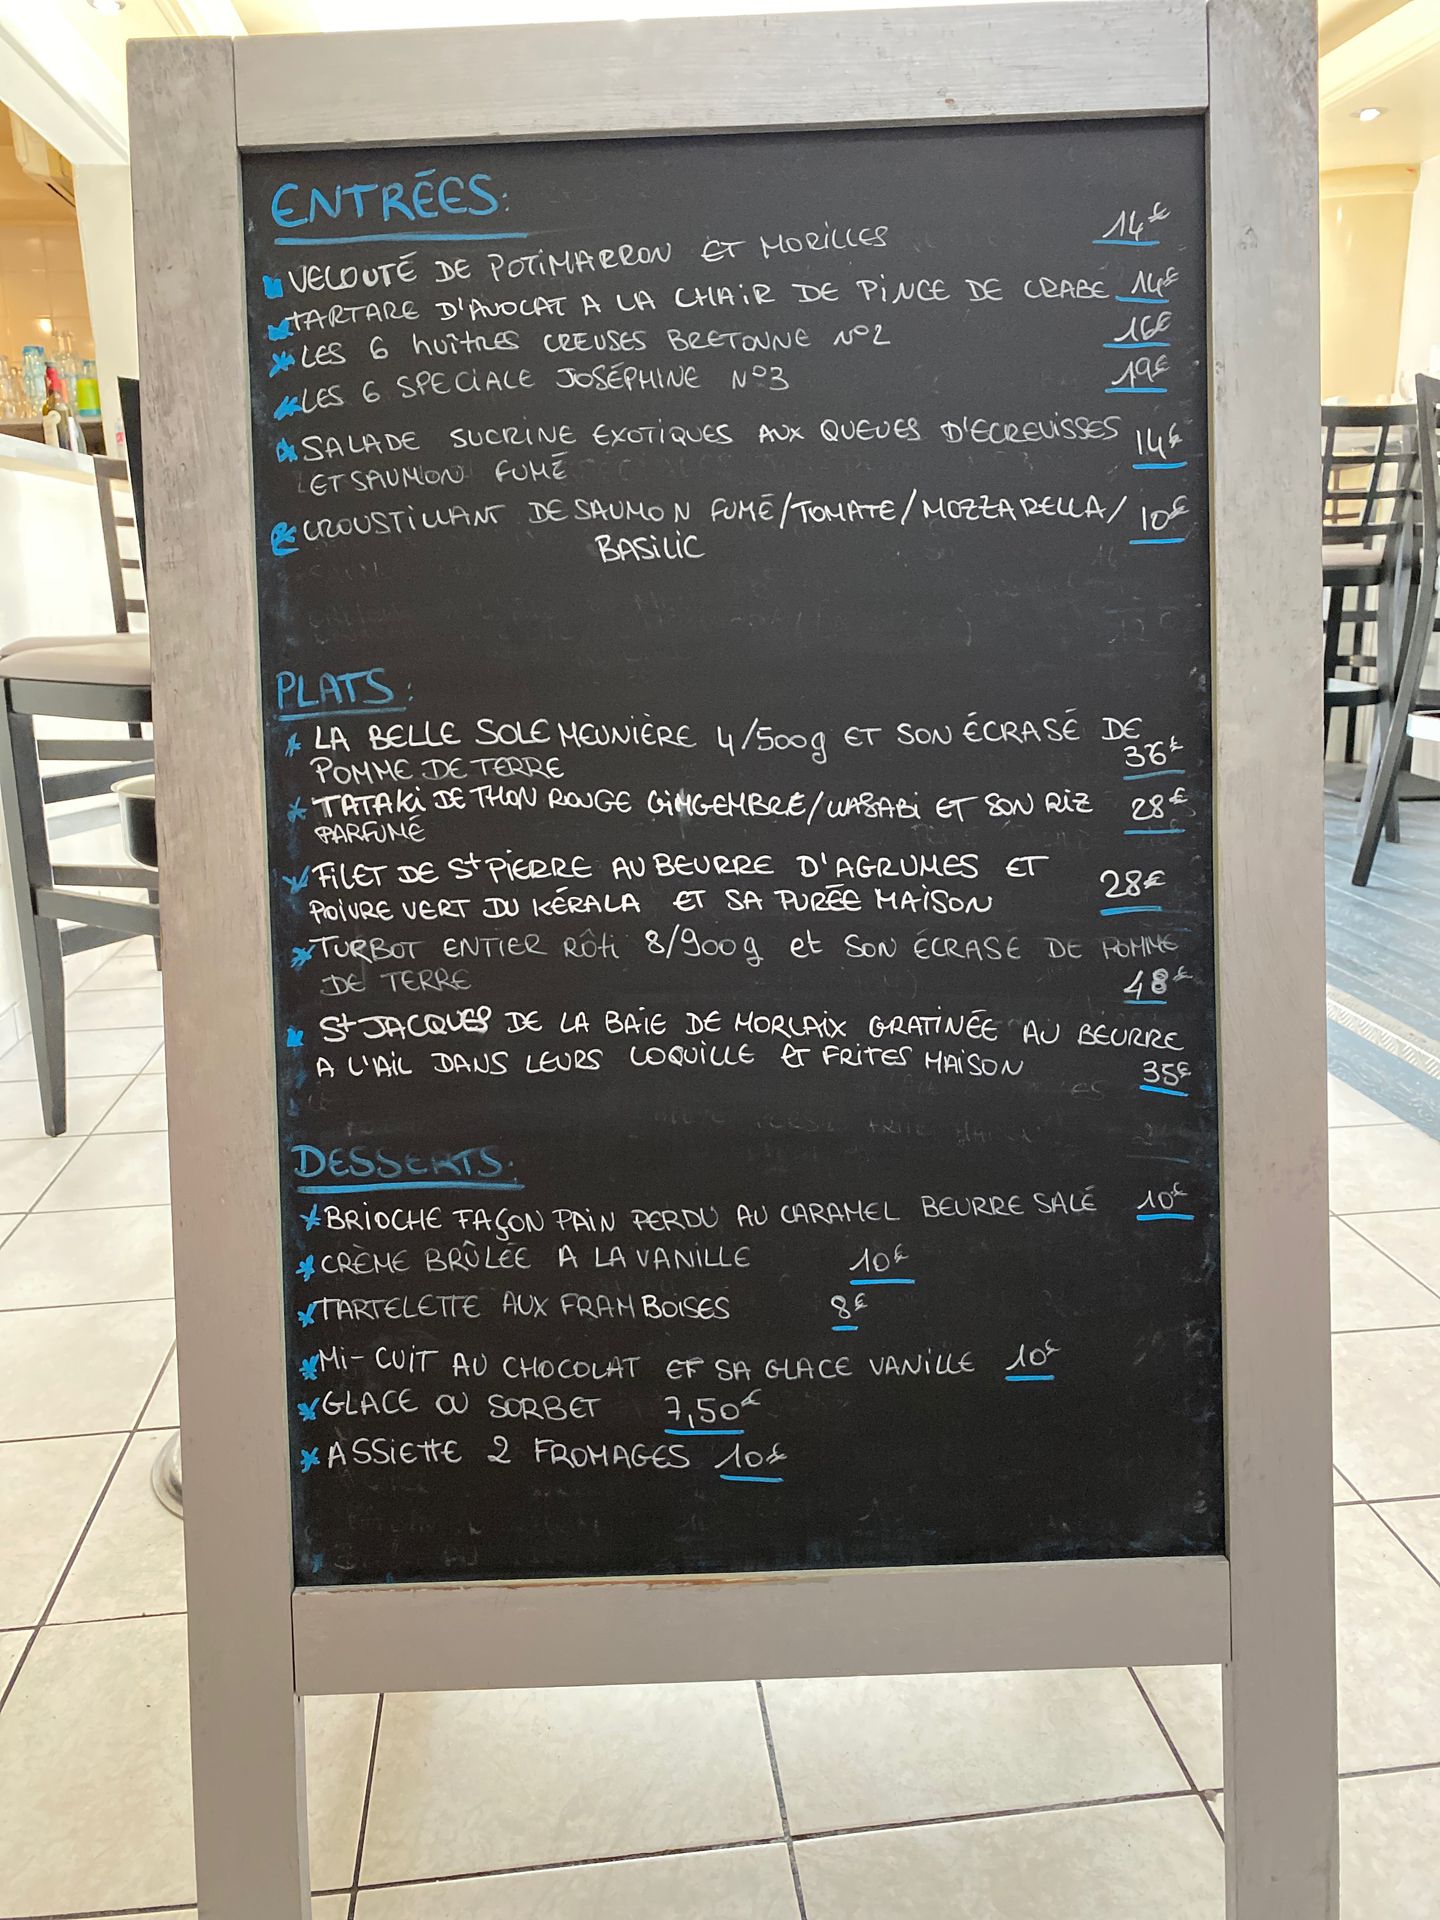 ENTRÉES:
VELOUTÉ DE POTIMARRON ET MORILLES 14€
TARTARE D'AVOCAT A LA CHAIR DE PINCE DE CRABE 14€
LES 6 HUÎTRES CREUSES BRETONNE N°2 16€
LES 6 SPECIALE JOSÉPHINE N°3 19€
SALADE SUCRINE EXOTIQUES AUX QUEUES D'ECREVISSES 14€
ET SAUMON FUMÉ
CROUSTILLANT DE SAUMON FUMÉ/TOMATE/MOZZARELLA/ 10€
BASILIC
PLATS:
* LA BELLE SOLE MEUNIÈRE 4/500g ET SON ÉCRASÉ DE
POMME DE TERRE 36€
* TATAKI DE THON ROUGE GIMGEMBRE/WASABI ET SON RIZ 28€
PARFUMÉ
* FILET DE St PIERRE AU BEURRE D'AGRUMES ET
POIVRE VERT DU KÉRALA ET SA PURÉE MAISON 28€
* TURBOT ENTIER RÔTI 8/900g et SON ÉCRASÉ DE POMME
DE TERRE 48€
St JACQUES DE LA BAIE DE MORLAIX GRATINÉE AU BEURRE
A L'AIL DANS LEURS COQUILLE ET FRITES MAISON 35€
DESSERTS:
* BRIOCHE FAÇON PAIN PERDU AU CARAMEL BEURRE SALÉ 10€
* CRÈME BRÛLÉE A LA VANILLE 10€
* TARTELETTE AUX FRAMBOISES 8€
* MI-CUIT AU CHOCOLAT ET SA GLACE VANILLE 10€
* GLACE OU SORBET 7,50€
* ASSIETTE 2 FROMAGES 10€